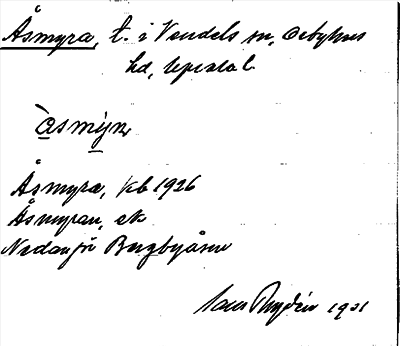 Åsmyra, t. i Vendels sn, Örbyhus
hd, Upsala l.
àsmýra
Åsmyra, kb 1926
Åsmyran, ek
Nedanför Bergbyåsen
Rydén 1931